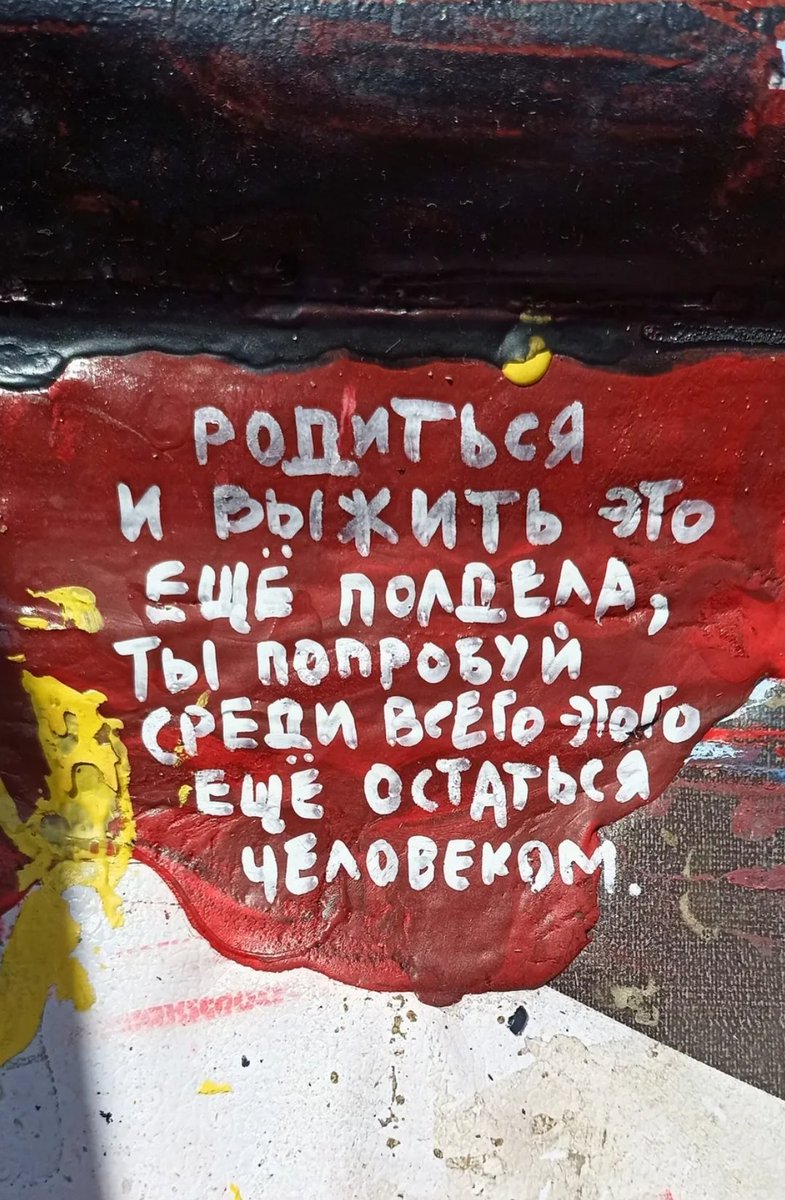 РОДИТЬСЯ
И ВЫЖИТЬ ЭТО
ЕЩЁ ПОЛДЕЛА,
ТЫ ПОПРОБУЙ
СРЕДИ ВСЕГО ЭТОГО
ЕЩЁ ОСТАТЬСЯ
ЧЕЛОВЕКОМ.